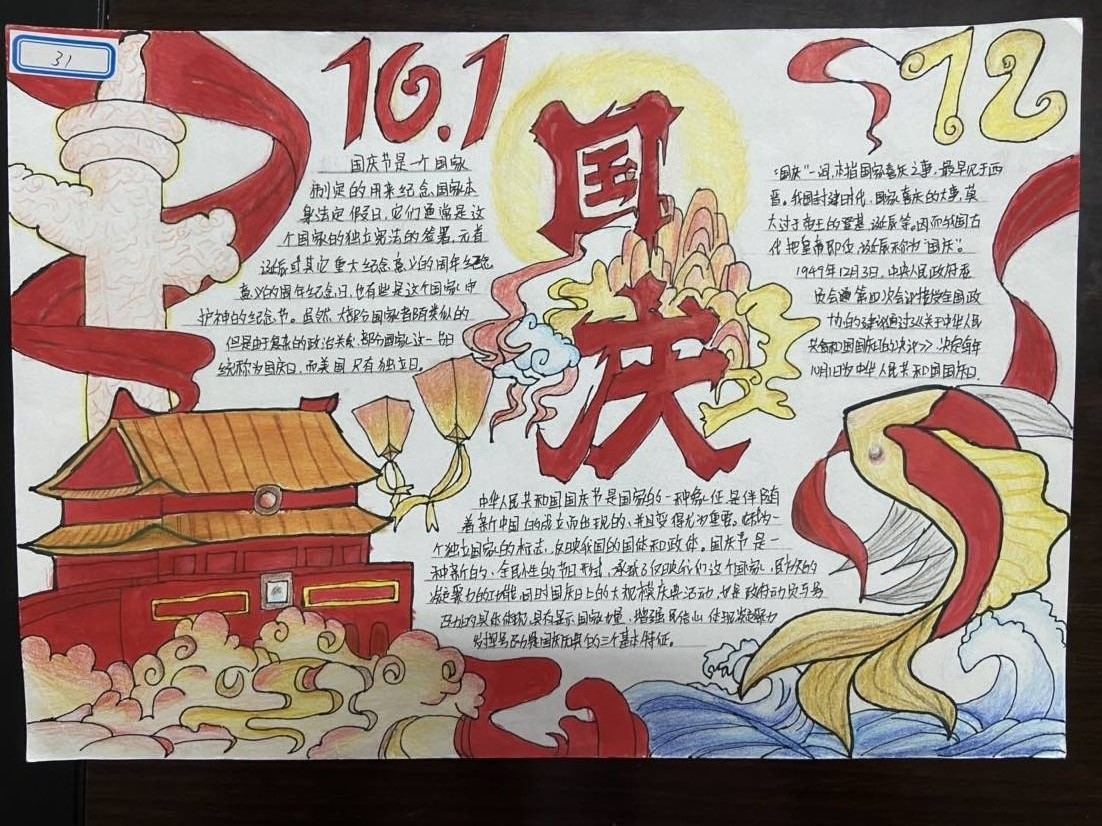 31
10.1
72
国庆
国庆节是一个国家
制定的用来纪念国家本
身法定假日,它们通常是这
个国家的独立宪法的签署、元首
诞辰或其它重大纪念意义的周年纪念
意义的周年纪念日,也有些是这个国家守
护神的纪念节。虽然大部分国家都有类似的
但是由于复杂的政治关系,部分国家这一节日
统称为国庆日,而美国只有独立日。
“国庆”一词,本指国家喜庆之事,最早见于西
晋。我国封建时代,国家喜庆的大事,莫
大过于帝王的登基、诞辰等。因而我国古
代把皇帝即位、诞辰称为“国庆”。
1949年12月3日,中央人民政府委
员会通第四次会议接受全国政
协的建议通过了《关于中华人民
共和国国庆日的决议》,决定每年
10月1日为中华人民共和国国庆日.
中华人民共和国国庆节是国家的一种象征,是伴随
着新中国的成立而出现的,并且变得尤为重要。成为一
个独立国家的标志,反映我国的国体和政体。国庆节是一
种新的、全民性的节日形式,承载了反映我们这个国家,民族的
凝聚力的功能,同时国庆日上的大规模庆典活动,也是政府动员与号
召力的具体体现,具有显示国家力量、增强民信心,体现凝聚力
发挥号召力是国庆庆典的三个基本特征。